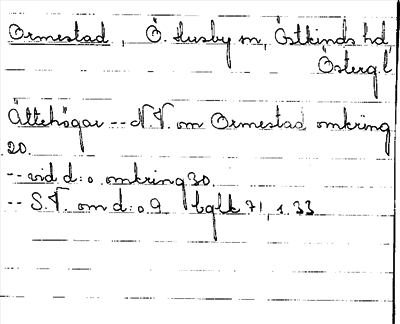 Ormestad, Ö. Husby sn, Östkinds hd
Östergl
Ättehögar -- N.V. om Ormestad omkring
20.
-- vid d:o omkring 30.
-- S.V. om d:o 9 bglk 71, s. 33